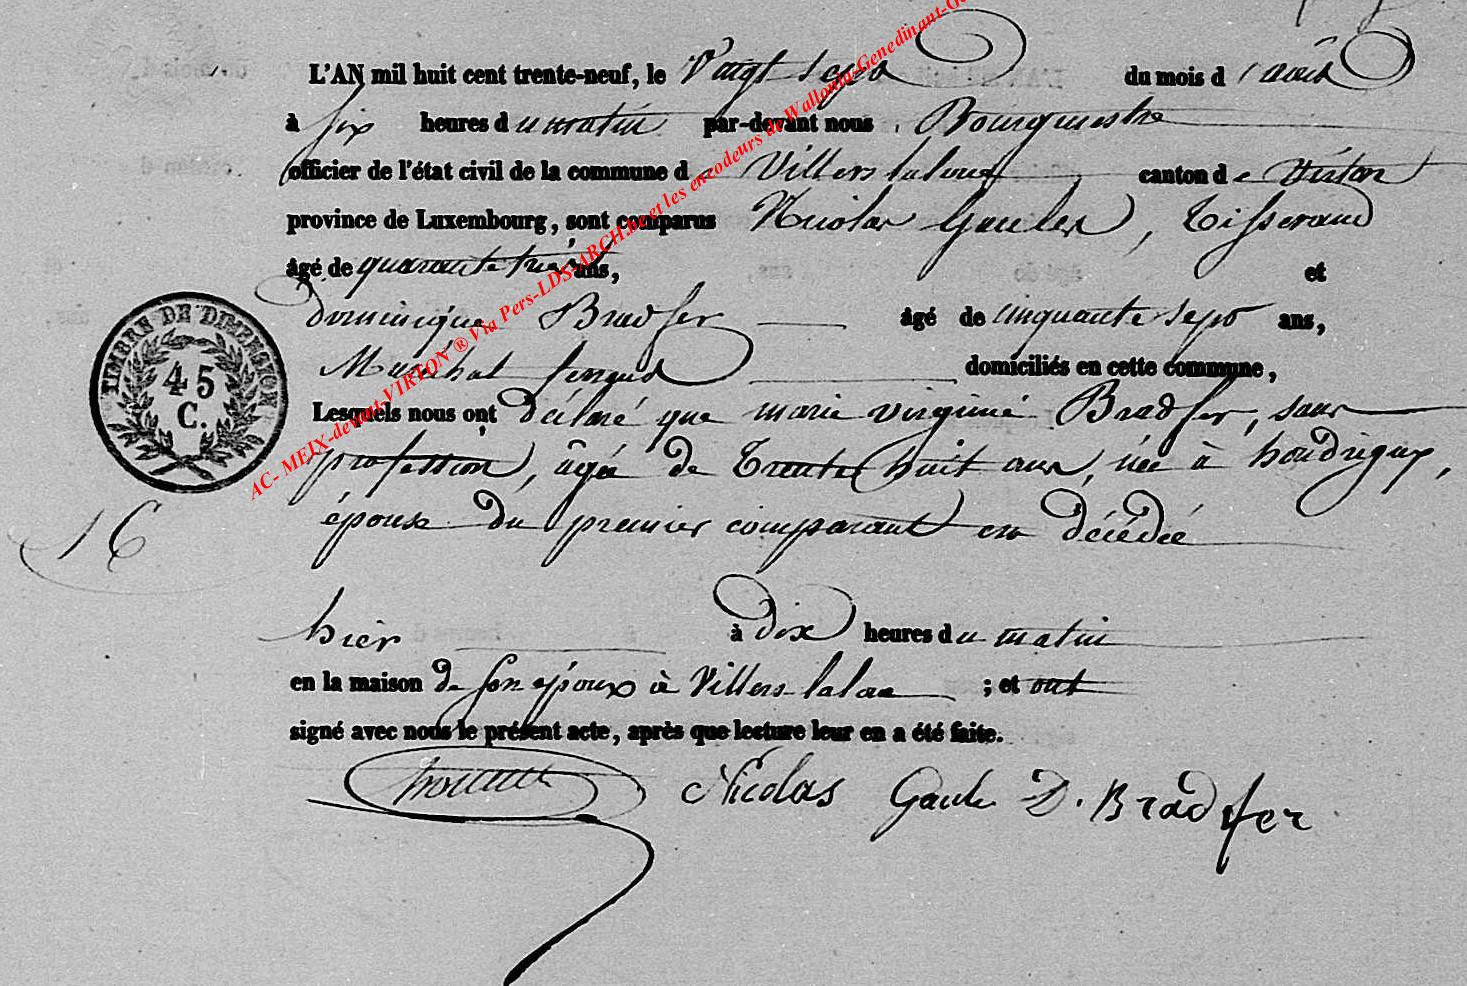 L'AN mil huit cent trente-neuf, le Vingt sept du mois d'août
à six heures du matin par-devant nous Bourgmestre
officier de l'état civil de la commune de Villers laloue canton de Virton
province de Luxembourg, sont comparus Nicolas Gaules, Tisserand
âgé de quarante trois ans, et
Dominique Bradfer âgé de cinquante sept ans,
Maréchal ferrand domiciliés en cette commune,
Lesquels nous ont déclaré que marie virginie Bradfer, sans
profession, âgée de Trente huit ans, née à houdrigny,
épouse du premier comparant est décédée
16
hier à dix heures du matin
en la maison de son époux à Villers-laloue ; et ont
signé avec nous le présent acte, après que lecture leur en a été faite.
Nicolas Gaule D. Bradfer
TIMBRE DE DIMENSION
45
C.
AC- MEIX-devant-VIRTON ® Via Pers-LDS-ARCH.be et les encodeurs de Wallonia-Genedinant-G